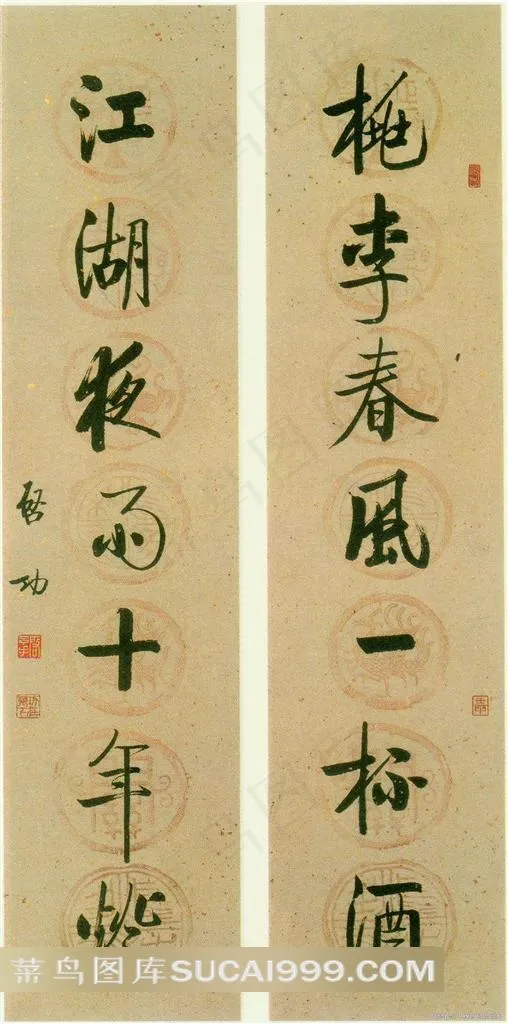 桃李春风一杯酒
江湖夜雨十年燈
啓功
菜鸟图库SUCAI999.COM